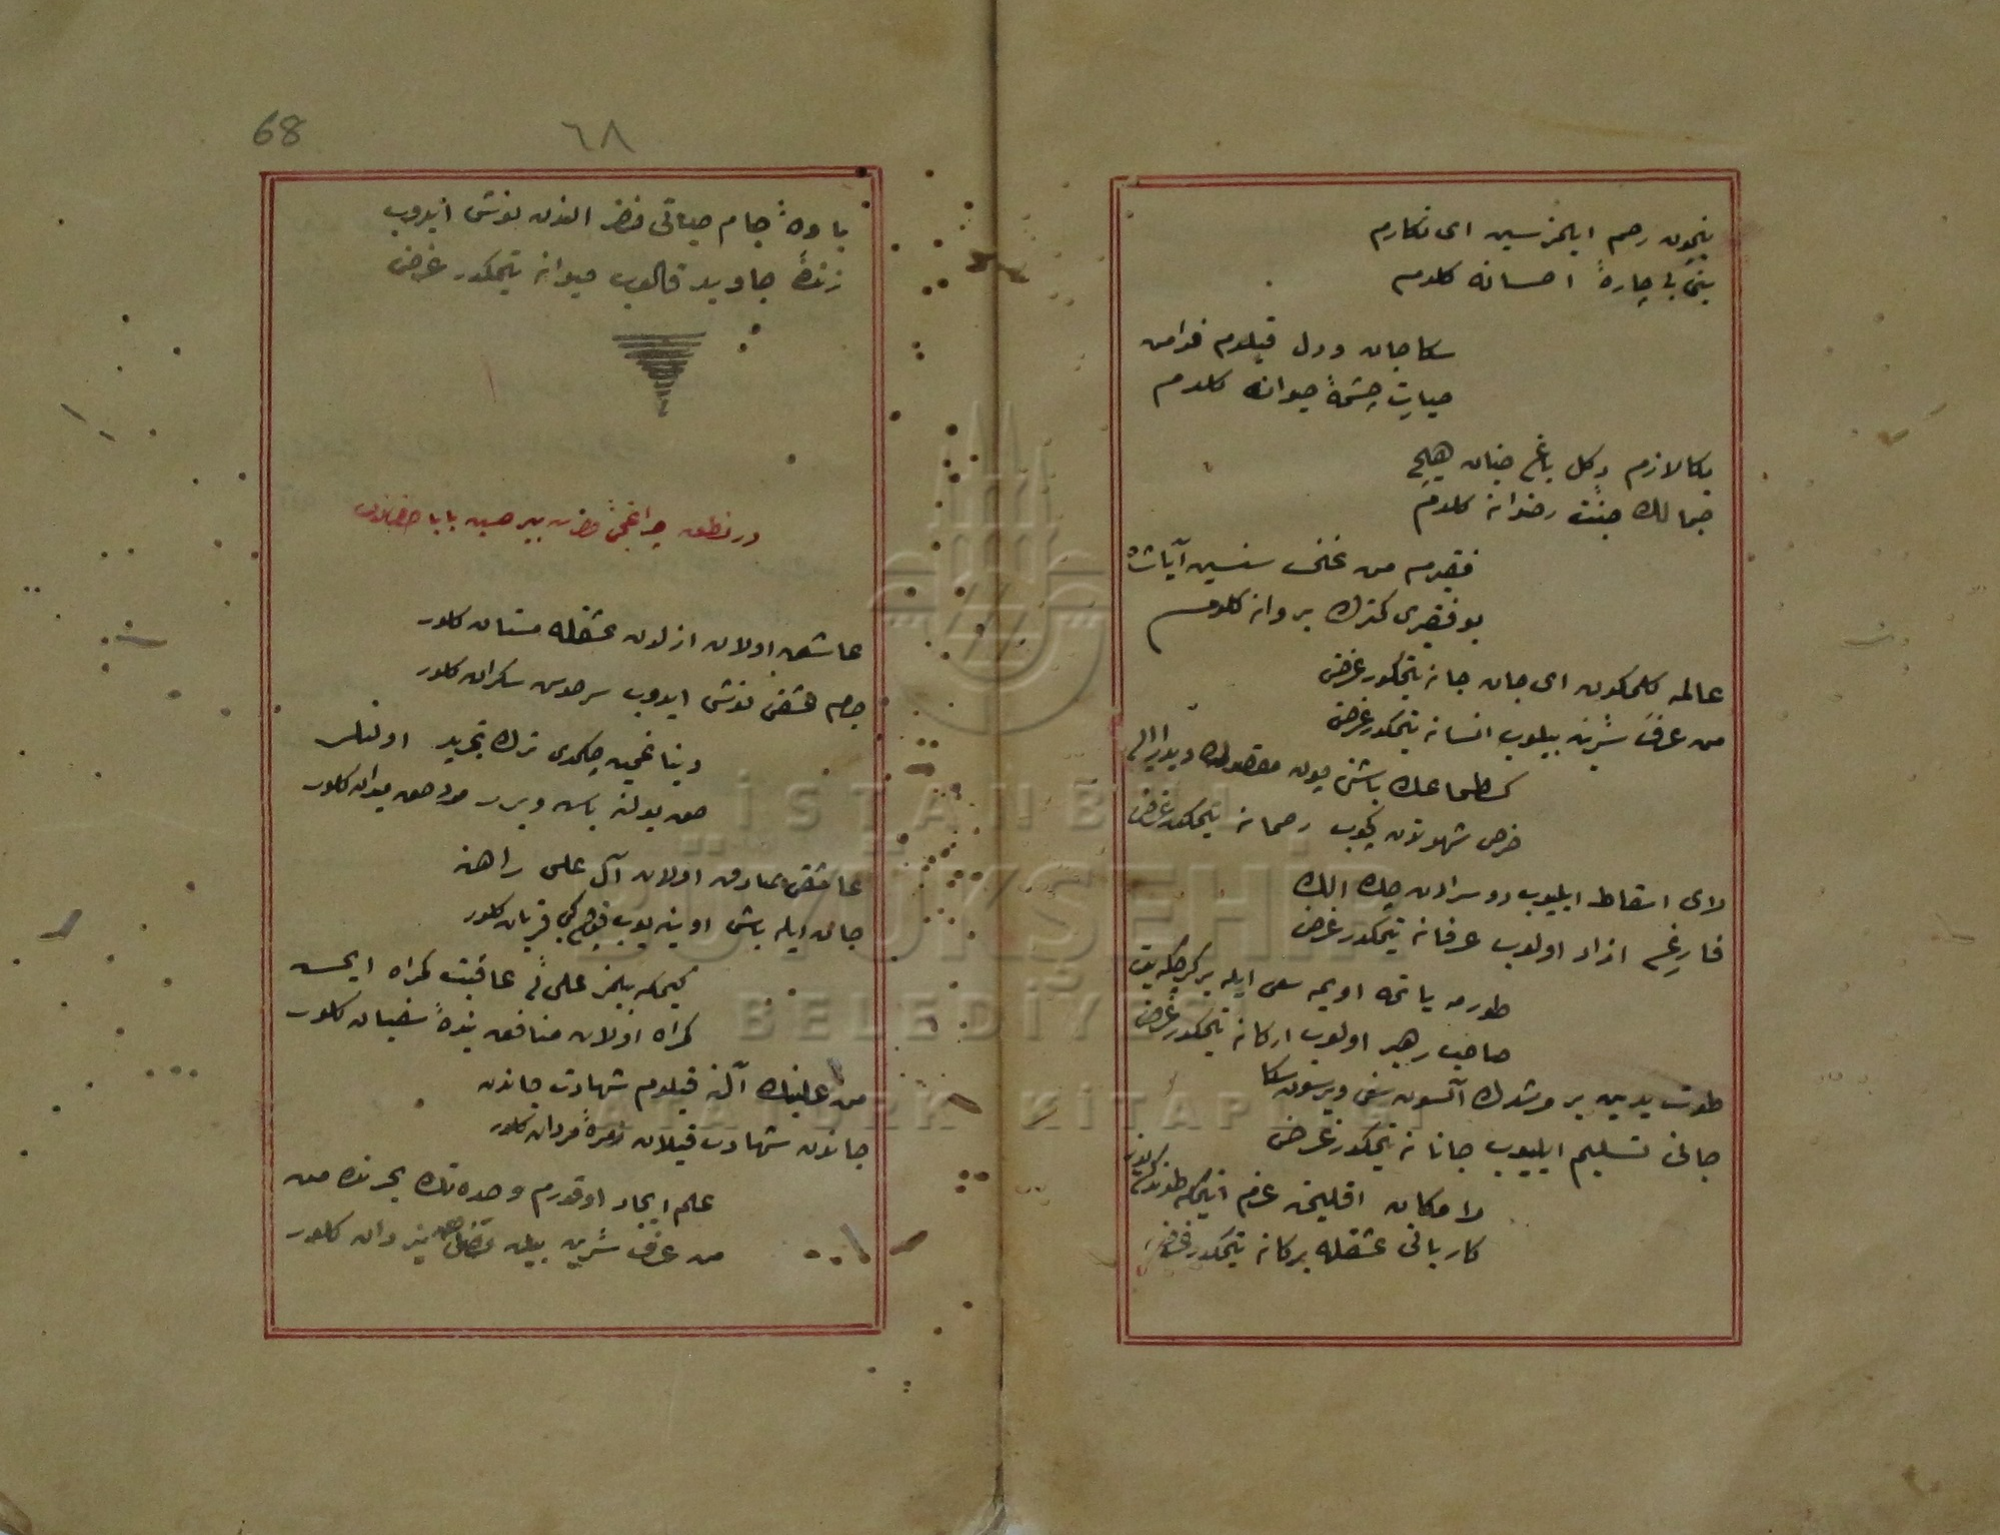 نیچون رحم ایلمزسین ای نکارم
بنی بی چارهٔ احسانه کلدم
سکا جان و دل قیلدم فرامن
حیات چشمهٔ حیوانه کلدم
بکا لازم دکل باغ جنان هیچ
جمالك جنت رضوانه کلدم
فقیرم من غنی سنسین آیا شاه
بو فقیری کندك بروانه کلدم
عالمه کلمکدن ای جان جانه یتمکدر غرض
من عرف سرین بیلوب انسانه یتمکدر غرض
باشنی مقصودك دیدار
حرص شهوتدن کچوب رحمانه یتمکدر غرض
لای اسقاط ایلیوب دو سرادن چك الك
فارغم ازاد اولوب عرفانه یتمکدر غرض
طورمه یاتمه اویمه سعی ایله بر کرچکه یت
صاحب رهبر اولوب ارکانه یتمکدر غرض
طوت یدین بر مرشدك آلسون سنی ویرسون سکا
جانی تسلیم ایلیوب جانانه یتمکدر غرض
لا مکان اقلیمن عزم
کاربانی عشقله برکانه یتمکدر غرض
68
٦٨
بادهٔ جام حیاتی خضر الندن نوش ایدوب
زندهٔ جاوید قالوب حیوانه یتمکدر غرض
در نطق چراغجی پیر حسین بابا
عاشق اولان ازلدن عشقله مستان کلور
جام عشقی نوش ایدوب سرخوش سکران کلور
دنیا غمین چکمدی ترك تجرید اولنلر
حق یولنه باش ویرر مرد حق میدان کلور
عاشق صادق اولان آل علی راهنه
جان ایله باش اوینیوب قوچ کبی قربان کلور
کیمکه بیلمز علی یی عاقبت کمراه ایمش
کمراه اولان منافق بندهٔ شیطان کلور
من علینك آلنه قیلدم شهادت جاندن
جاندن شهادت قیلان زمرهٔ مردان کلور
علم ایجاد اوقورم وحدتك بحرنده من
من عرف سرین بیلن یزدان کلور